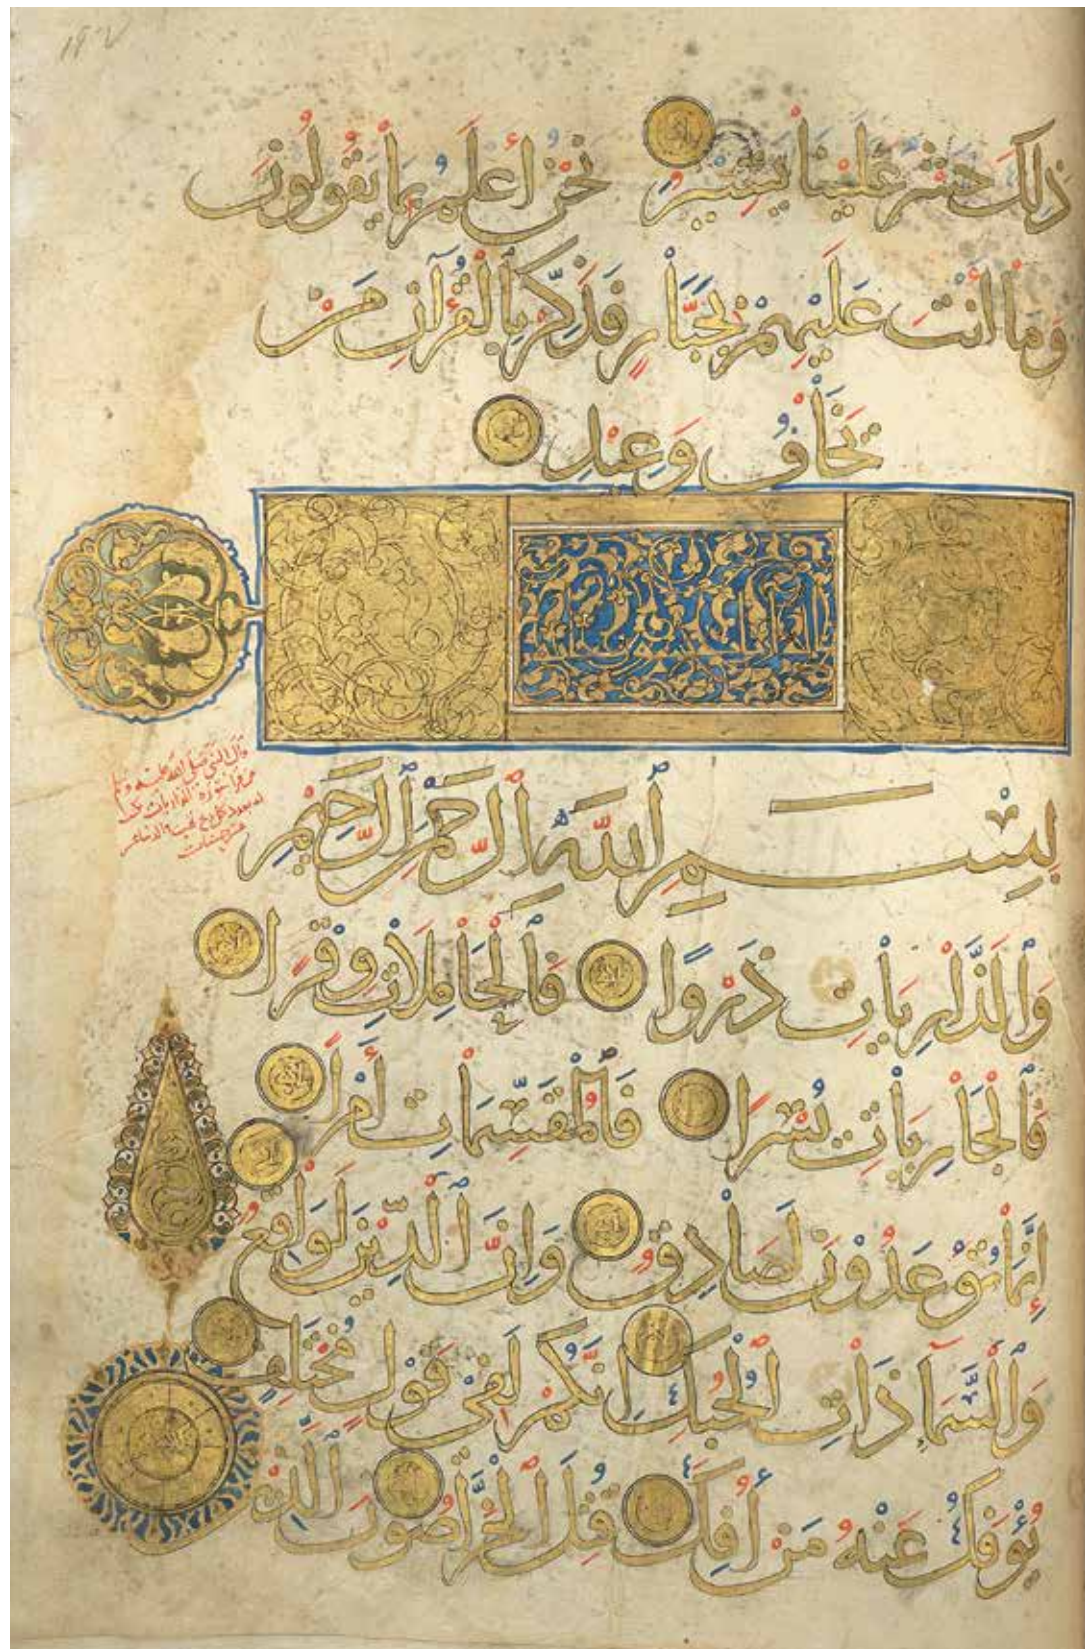 ذَلِكَ حَشْرٌ عَلَيْنَا يَسِيرٌ نَحْنُ أَعْلَمُ بِمَا يَقُولُونَ
وَمَا أَنْتَ عَلَيْهِمْ بِجَبَّارٍ فَذَكِّرْ بِالْقُرْآنِ مَنْ
يَخَافُ وَعِيدِ
قال النبي صلى الله عليه وسلم
من قرأ سورة الذاريات
بِسْمِ اللَّهِ الرَّحْمَنِ الرَّحِيمِ
وَالذَّارِيَاتِ ذَرْوًا فَالْحَامِلَاتِ وِقْرًا
فَالْجَارِيَاتِ يُسْرًا فَالْمُقَسِّمَاتِ أَمْرًا
إِنَّمَا تُوعَدُونَ لَصَادِقٌ وَإِنَّ الدِّينَ لَوَاقِعٌ
وَالسَّمَاءِ ذَاتِ الْحُبُكِ إِنَّكُمْ لَفِي قَوْلٍ مُخْتَلِفٍ
يُؤْفَكُ عَنْهُ مَنْ أُفِكَ قُتِلَ الْخَرَّاصُونَ الَّذِينَ